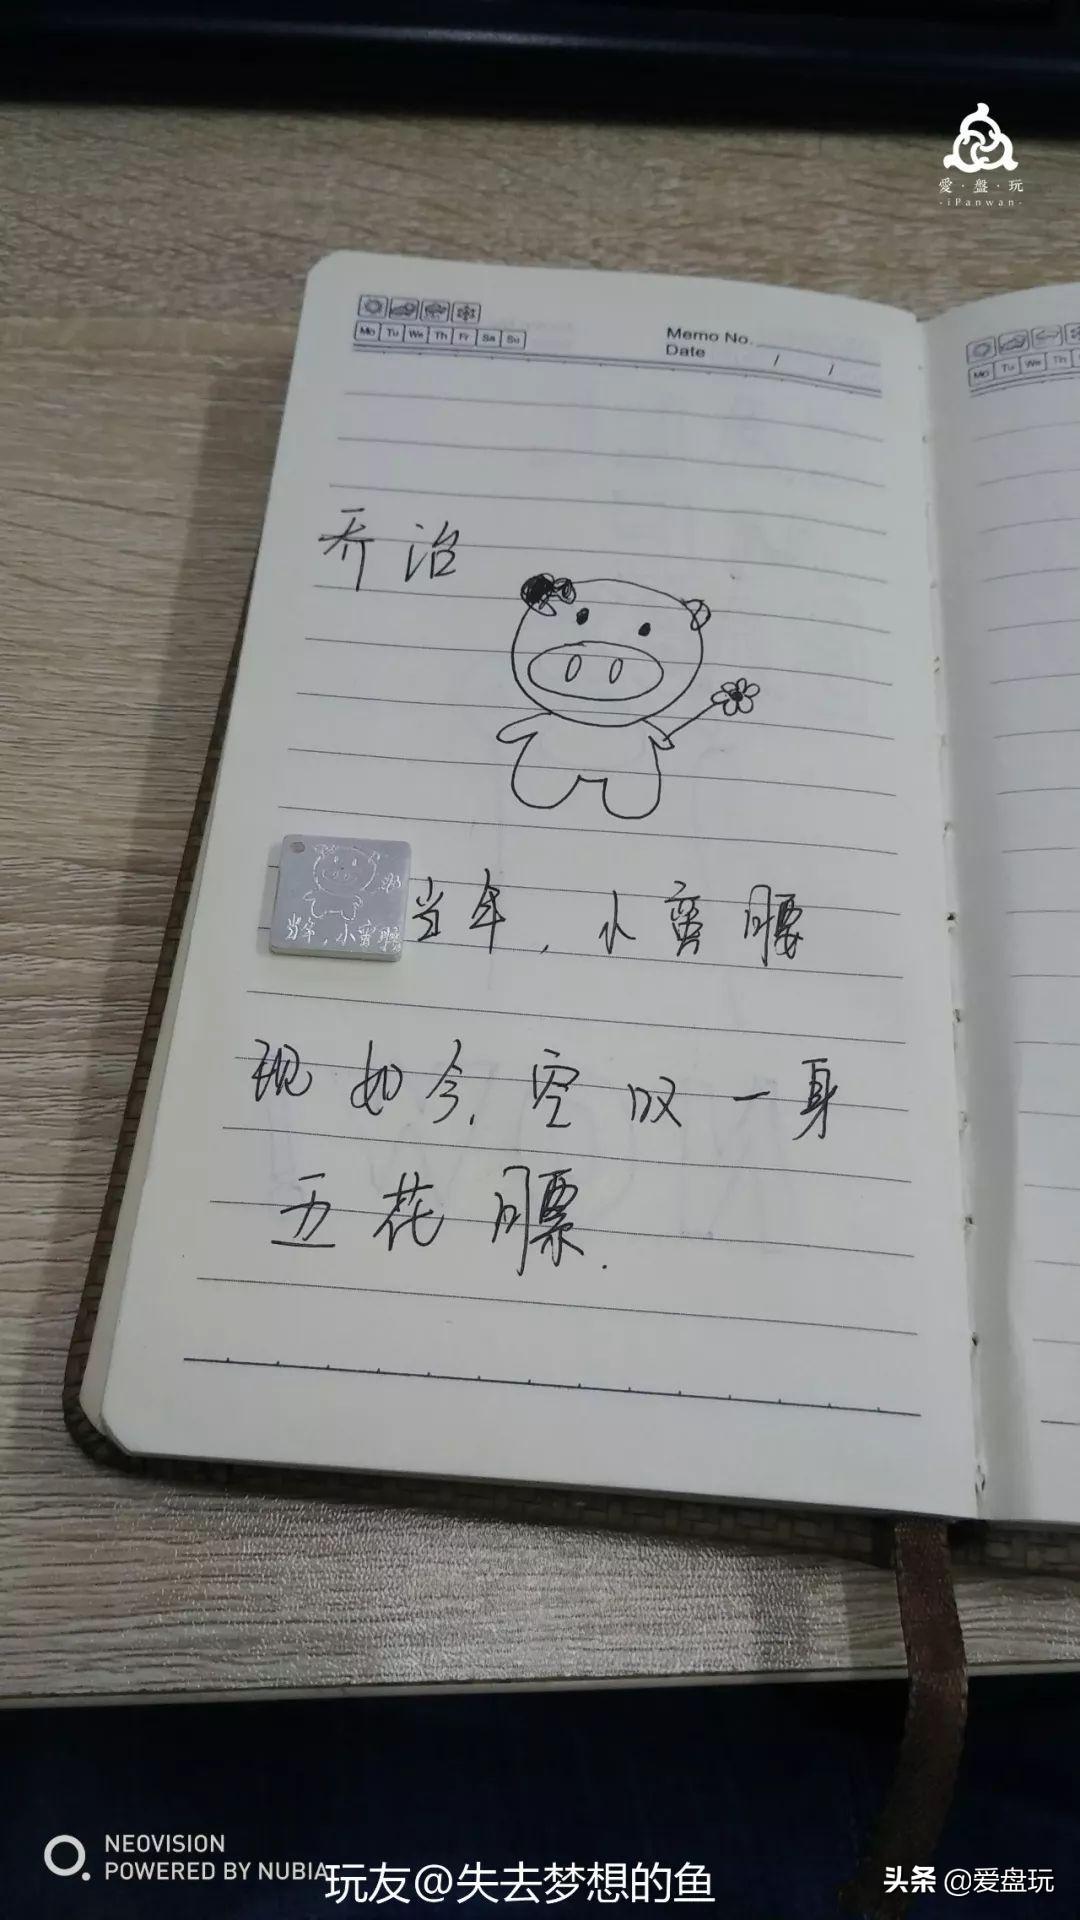 愛·盤·玩
·iPanwan·
Mo Tu We Th Fr Sa Su
Memo No.
Date / /
Mo Tu We Th
乔治
当年，小蛮腰
当年，小蛮腰
现如今，空叹一身
五花膘.
NEOVISION
POWERED BY NUBIA
玩友@失去梦想的鱼
头条 @爱盘玩